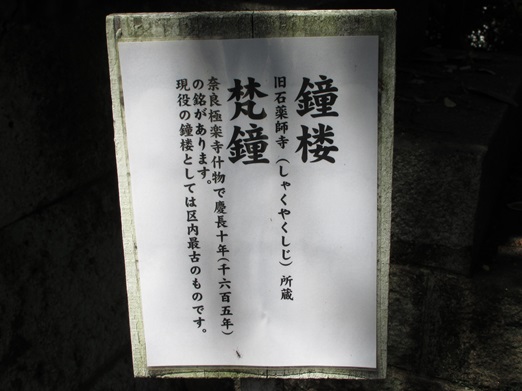 鐘楼
旧石薬師寺（しゃくやくしじ）所蔵
梵鐘
奈良極楽寺什物で慶長十年（千六百五年）
の銘があります。
現役の鐘楼としては区内最古のものです。